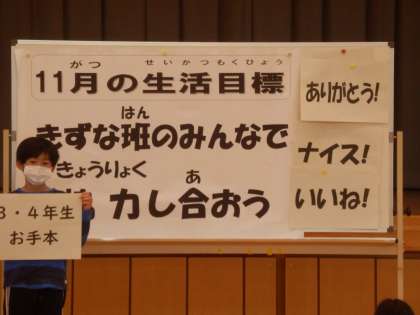 がつ せいかつもくひょう
11月の生活目標
はん
きずな班のみんなで
きょうりょく あ
力し合おう
ありがとう!
ナイス!
いいね!
3・4年生
お手本